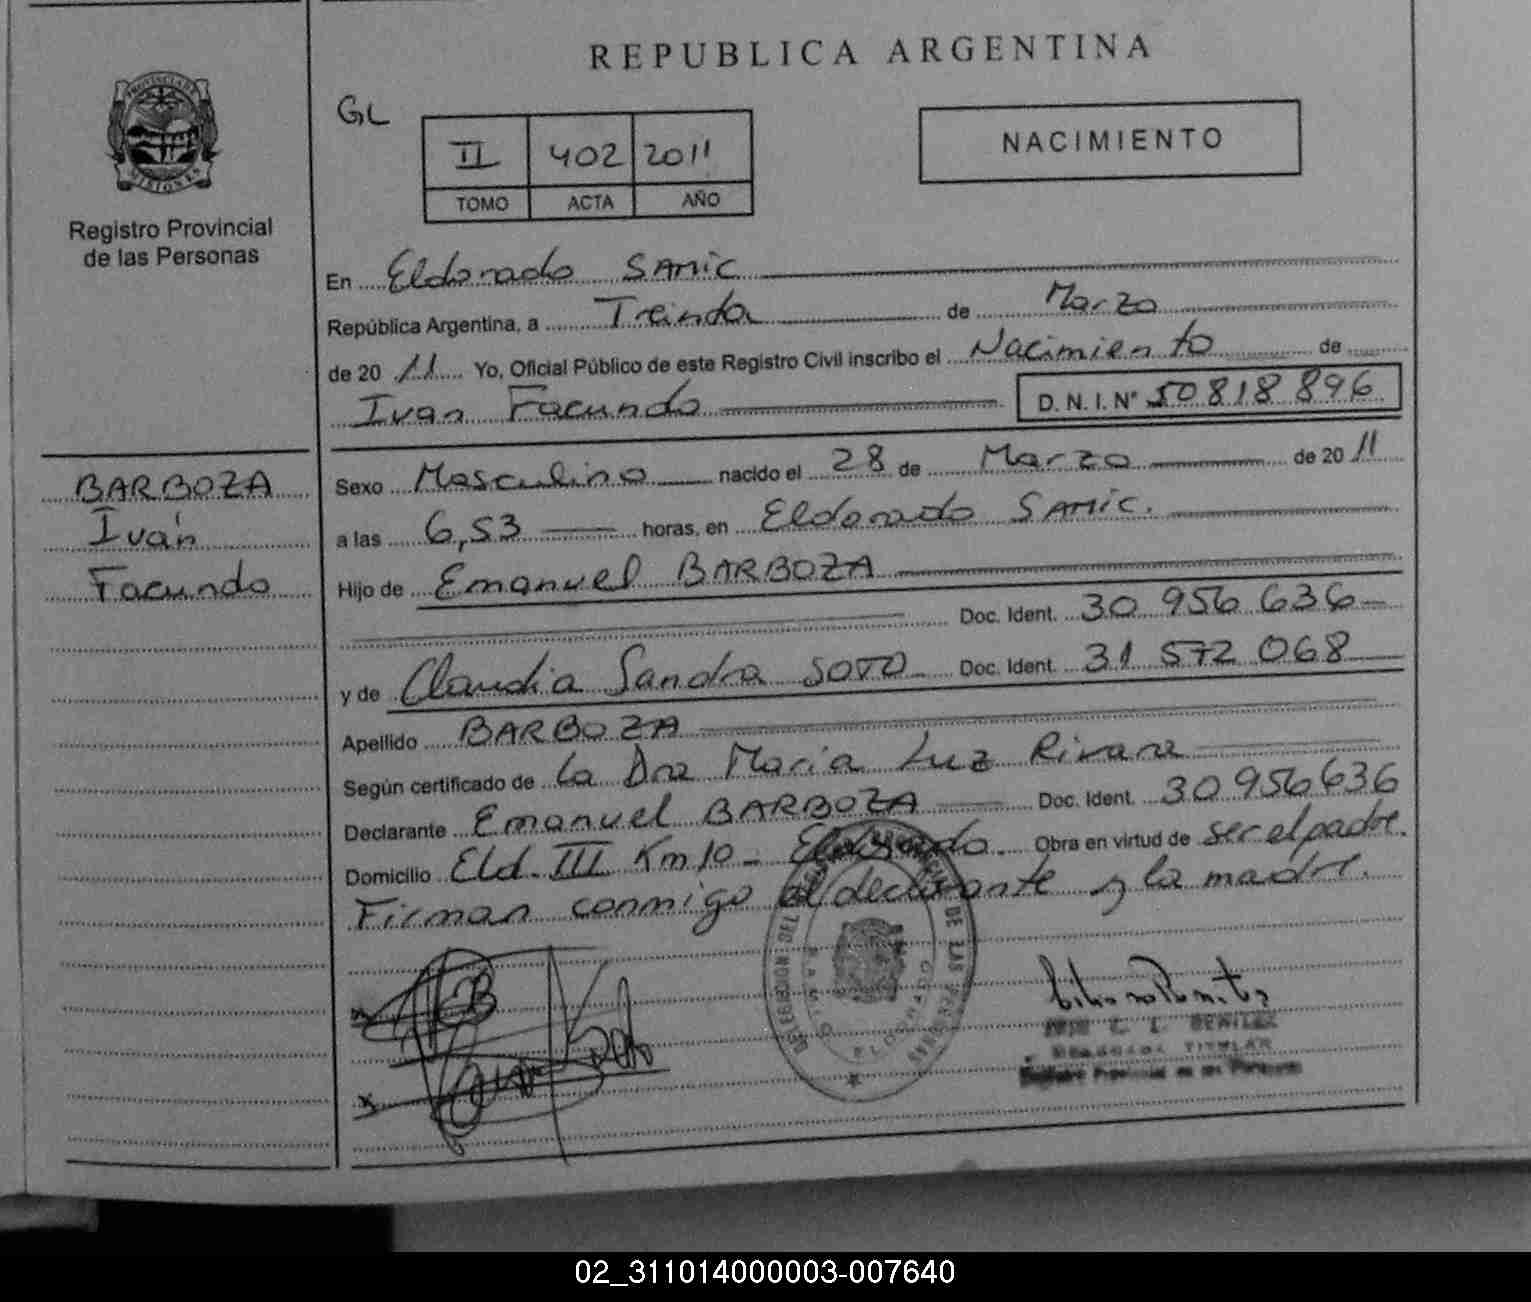 REPUBLICA ARGENTINA
PROVINCIA DE
MISIONES
Registro Provincial
de las Personas
GL
II 402 2011
TOMO ACTA AÑO
NACIMIENTO
En Eldorado SAMIC
República Argentina, a Treinta de Marzo
de 20 11 Yo, Oficial Público de este Registro Civil inscribo el Nacimiento de
Ivan Facundo D. N. I. N° 50 818 896
BARBOZA
Iván
Facundo
Sexo Masculino nacido el 28 de Marzo de 20 11
a las 6,53 horas, en Eldorado SAMIC.
Hijo de Emanuel BARBOZA
Doc. Ident. 30 956 636
y de Claudia Sandra SOTO Doc. Ident. 31 572 068
Apellido BARBOZA
Según certificado de la Dra Maria Luz Rivara
Declarante Emanuel BARBOZA Doc. Ident. 30 956 636
Domicilio Eld. III Km 10 - Eldorado. Obra en virtud de ser el padre.
Firman conmigo el declarante y la madre.
EB
Soto
DE LAS PERSONAS
TITULAR
02_311014000003-007640